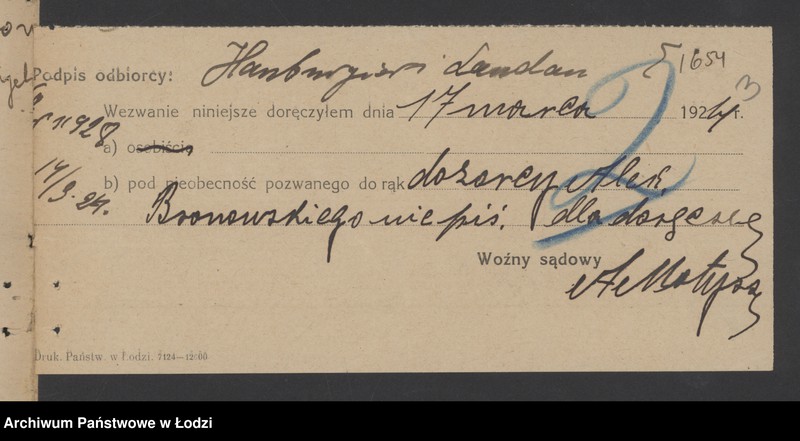 1654
3
Podpis odbiorcy: Hamburgier i Landau
Wezwanie niniejsze doręczyłem dnia 17 marca 1924 r.
11928
a) osobiście
14/3.24.
b) pod nieobecność pozwanego do rąk dozorcy Alek.
Bronowskiego nie piś. dla doręcze
Woźny sądowy
Druk. Państw. w Łodzi. 7124—12000
Archiwum Państwowe w Łodzi